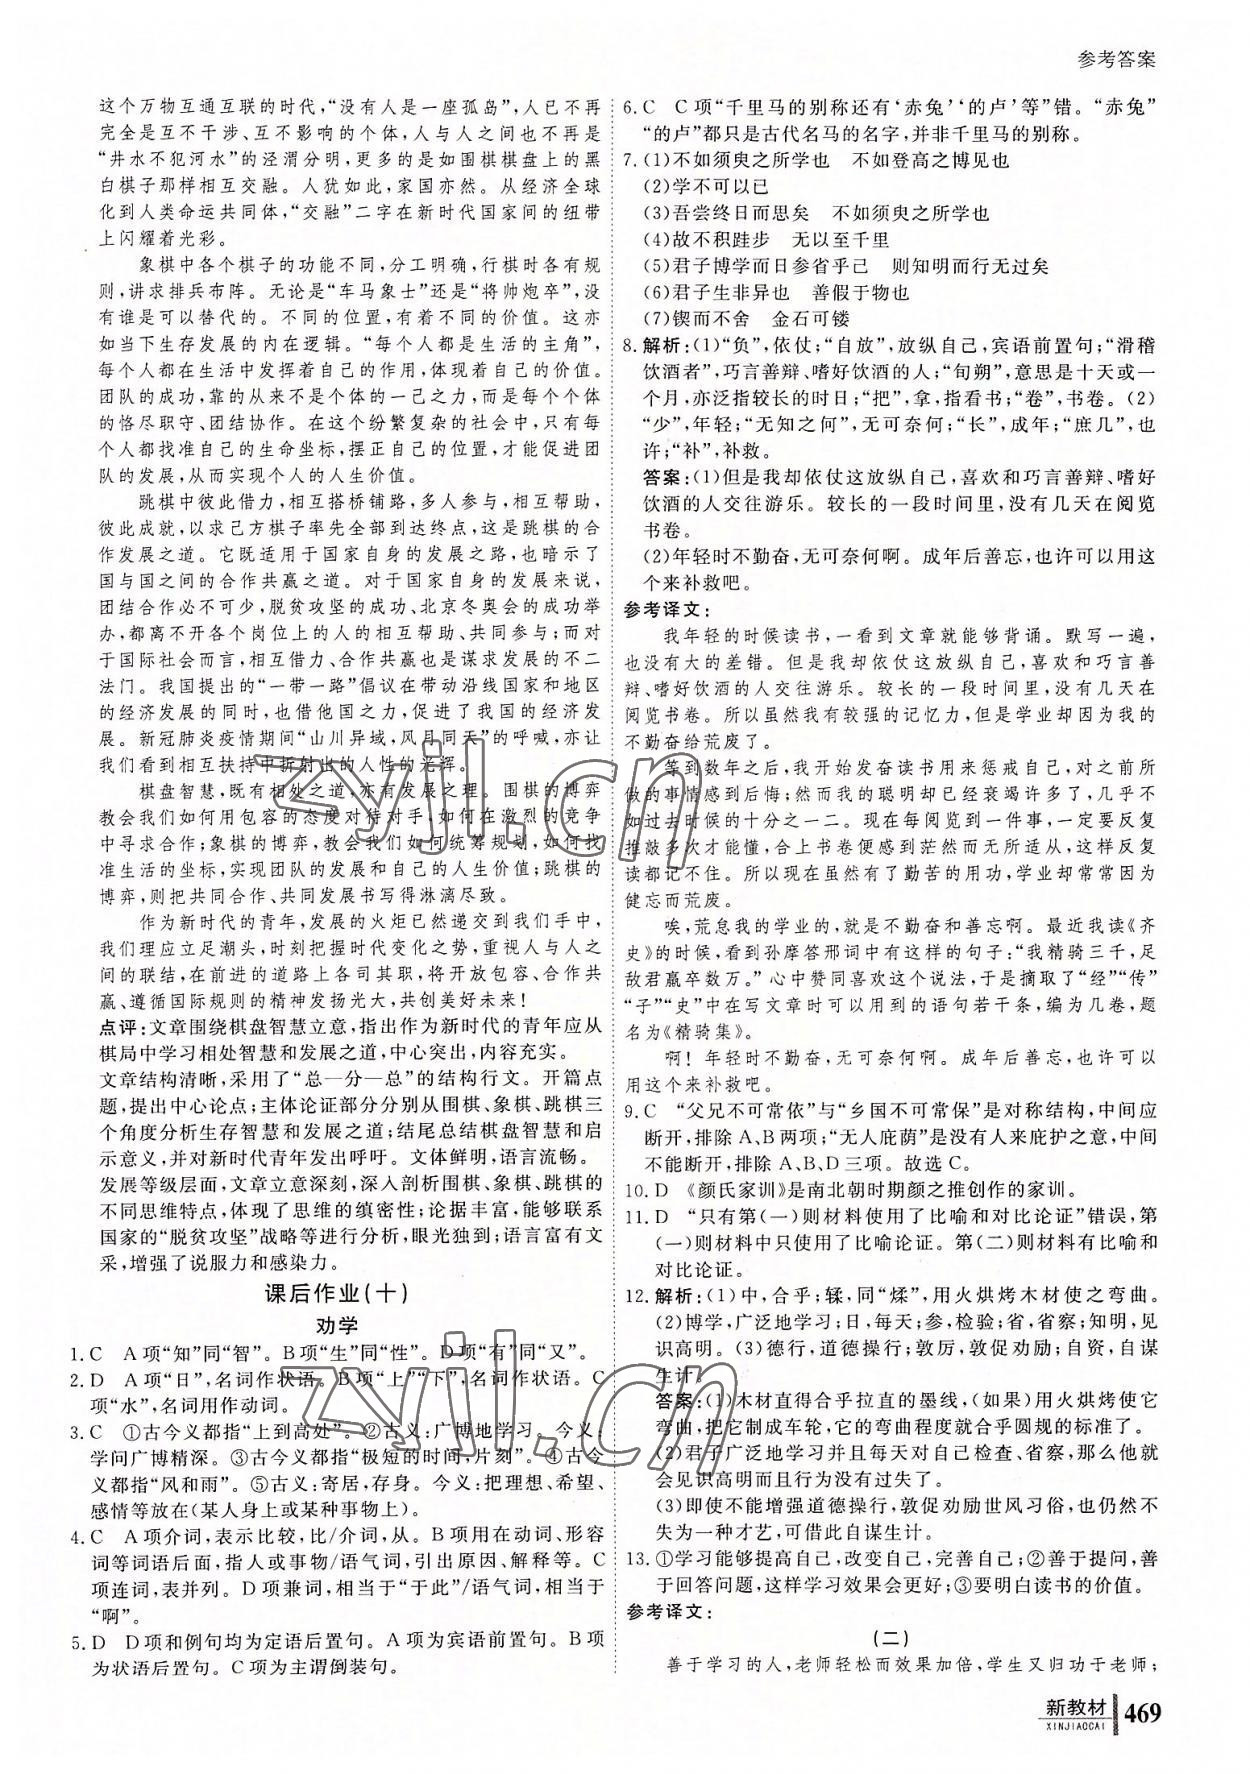 参考答案
这个万物互通互联的时代,“没有人是一座孤岛”,人已不再
完全是互不干涉、互不影响的个体,人与人之间也不再是
“井水不犯河水”的泾渭分明,更多的是如围棋棋盘上的黑
白棋子那样相互交融。人犹如此,家国亦然。从经济全球
化到人类命运共同体,“交融”二字在新时代国家间的纽带
上闪耀着光彩。
象棋中各个棋子的功能不同,分工明确,行棋时各有规
则,讲求排兵布阵。无论是“车马象士”还是“将帅炮卒”,没
有谁是可以替代的。不同的位置,有着不同的价值。这亦
如当下生存发展的内在逻辑。“每个人都是生活的主角”,
每个人都在生活中发挥着自己的作用,体现着自己的价值。
团队的成功,靠的从来不是个体的一己之力,而是每个个体
的恪尽职守、团结协作。在这个纷繁复杂的社会中,只有每
个人都找准自己的生命坐标,摆正自己的位置,才能促进团
队的发展,从而实现个人的人生价值。
跳棋中彼此借力,相互搭桥铺路,多人参与,相互帮助,
彼此成就,以求己方棋子率先全部到达终点,这是跳棋的合
作发展之道。它既适用于国家自身的发展之路,也暗示了
国与国之间的合作共赢之道。对于国家自身的发展来说,
团结合作必不可少,脱贫攻坚的成功、北京冬奥会的成功举
办,都离不开各个岗位上的人的相互帮助、共同参与;而对
于国际社会而言,相互借力、合作共赢也是谋求发展的不二
法门。我国提出的“一带一路”倡议在带动沿线国家和地区
的经济发展的同时,也借他国之力,促进了我国的经济发
展。新冠肺炎疫情期间“山川异域,风月同天”的呼喊,亦让
我们看到相互扶持中折射出的人性的光辉。
棋盘智慧,既有相处之道,亦有发展之理。围棋的博弈
教会我们如何用包容的态度对待对手,如何在激烈的竞争
中寻求合作;象棋的博弈,教会我们如何统筹规划,如何找
准生活的坐标,实现团队的发展和自己的人生价值;跳棋的
博弈,则把共同合作、共同发展书写得淋漓尽致。
作为新时代的青年,发展的火炬已然递交到我们手中,
我们理应立足潮头,时刻把握时代变化之势,重视人与人之
间的联结,在前进的道路上各司其职,将开放包容、合作共
赢、遵循国际规则的精神发扬光大,共创美好未来!
点评:文章围绕棋盘智慧立意,指出作为新时代的青年应从
棋局中学习相处智慧和发展之道,中心突出,内容充实。
文章结构清晰,采用了“总—分—总”的结构行文。开篇点
题,提出中心论点;主体论证部分分别从围棋、象棋、跳棋三
个角度分析生存智慧和发展之道;结尾总结棋盘智慧和启
示意义,并对新时代青年发出呼吁。文体鲜明,语言流畅。
发展等级层面,文章立意深刻,深入剖析围棋、象棋、跳棋的
不同思维特点,体现了思维的缜密性;论据丰富,能够联系
国家的“脱贫攻坚”战略等进行分析,眼光独到;语言富有文
采,增强了说服力和感染力。
课后作业(十)
劝学
1. C　A项“知”同“智”。B项“生”同“性”。D项“有”同“又”。
2. D　A项“日”,名词作状语。B项“上”“下”,名词作状语。C
项“水”,名词用作动词。
3. C　①古今义都指“上到高处”。②古义:广博地学习。今义:
学问广博精深。③古今义都指“极短的时间,片刻”。④古今
义都指“风和雨”。⑤古义:寄居,存身。今义:把理想、希望、
感情等放在(某人身上或某种事物上)。
4. C　A项介词,表示比较,比/介词,从。B项用在动词、形容
词等词语后面,指人或事物/语气词,引出原因、解释等。C
项连词,表并列。D项兼词,相当于“于此”/语气词,相当于
“啊”。
5. D　D项和例句均为定语后置句。A项为宾语前置句。B项
为状语后置句。C项为主谓倒装句。
6. C　C项“千里马的别称还有‘赤兔’‘的卢’等”错。“赤兔”
“的卢”都只是古代名马的名字,并非千里马的别称。
7. (1)不如须臾之所学也　不如登高之博见也
(2)学不可以已
(3)吾尝终日而思矣　不如须臾之所学也
(4)故不积跬步　无以至千里
(5)君子博学而日参省乎己　则知明而行无过矣
(6)君子生非异也　善假于物也
(7)锲而不舍　金石可镂
8. 解析:(1)“负”,依仗;“自放”,放纵自己,宾语前置句;“滑稽
饮酒者”,巧言善辩、嗜好饮酒的人;“旬朔”,意思是十天或一
个月,亦泛指较长的时日;“把”,拿,指看书;“卷”,书卷。(2)
“少”,年轻;“无知之何”,无可奈何;“长”,成年;“庶几”,也
许;“补”,补救。
答案:(1)但是我却依仗这放纵自己,喜欢和巧言善辩、嗜好
饮酒的人交往游乐。较长的一段时间里,没有几天在阅览
书卷。
(2)年轻时不勤奋,无可奈何啊。成年后善忘,也许可以用这
个来补救吧。
参考译文:
我年轻的时候读书,一看到文章就能够背诵。默写一遍,
也没有大的差错。但是我却依仗这放纵自己,喜欢和巧言善
辩、嗜好饮酒的人交往游乐。较长的一段时间里,没有几天在
阅览书卷。所以虽然我有较强的记忆力,但是学业却因为我的
不勤奋给荒废了。
等到数年之后,我开始发奋读书用来惩戒自己,对之前所
做的事情感到后悔;然而我的聪明却已经衰竭许多了,几乎不
如过去时候的十分之一二。现在每阅览到一件事,一定要反复
推敲多次才能懂,合上书卷便感到茫然而无所适从,这样反复
读都记不住。所以然虽然有了勤苦的用功,学业却常常因为
健忘而荒废。
唉,荒怠我的学业的,就是不勤奋和善忘啊。最近我读《齐
史》的时候,看到孙搴答邢词中有这样的句子:“我精骑三千,足
敌君羸卒数万。”心中赞同喜欢这个说法,于是摘取了“经”“传”
“子”“史”中在写文章时可以用到的语句若干条,编为几卷,题
名为《精骑集》。
啊!年轻时不勤奋,无可奈何啊。成年后善忘,也许可以
用这个来补救吧。
9. C　“父兄不可常依”与“乡国不可常保”是对称结构,中间应
断开,排除A、B两项;“无人庇荫”是没有人来庇护之意,中间
不能断开,排除A、B、D三项。故选C。
10. D　《颜氏家训》是南北朝时期颜之推创作的家训。
11. D　“只有第(一)则材料使用了比喻和对比论证”错误,第
(一)则材料中只使用了比喻论证。第(二)则材料有比喻和
对比论证。
12. 解析:(1)中,合乎;輮,同“煣”,用火烘烤木材使之弯曲。
(2)博学,广泛地学习;日,每天;参,检验;省,省察;知明,见
识高明。(3)德行,道德操行;敦厉,敦促劝励;自资,自谋
生计。
答案:(1)木材直得合乎拉直的墨线,(如果)用火烘烤使它
弯曲,把它制成车轮,它的弯曲程度就合乎圆规的标准了。
(2)君子广泛地学习并且每天对自己检查、省察,那么他就
会见识高明而且行为没有过失了。
(3)即使不能增强道德操行,敦促劝励世风习俗,也仍然不
失为一种才艺,可借此自谋生计。
13. ①学习能够提高自己,改变自己,完善自己;②善于提问,善
于回答问题,这样学习效果会更好;③要明白读书的价值。
参考译文:
(二)
善于学习的人,老师轻松而效果加倍,学生又归功于老师;
新教材
XINJIAOCAI
469
zyjl.cn
zyjl.cn